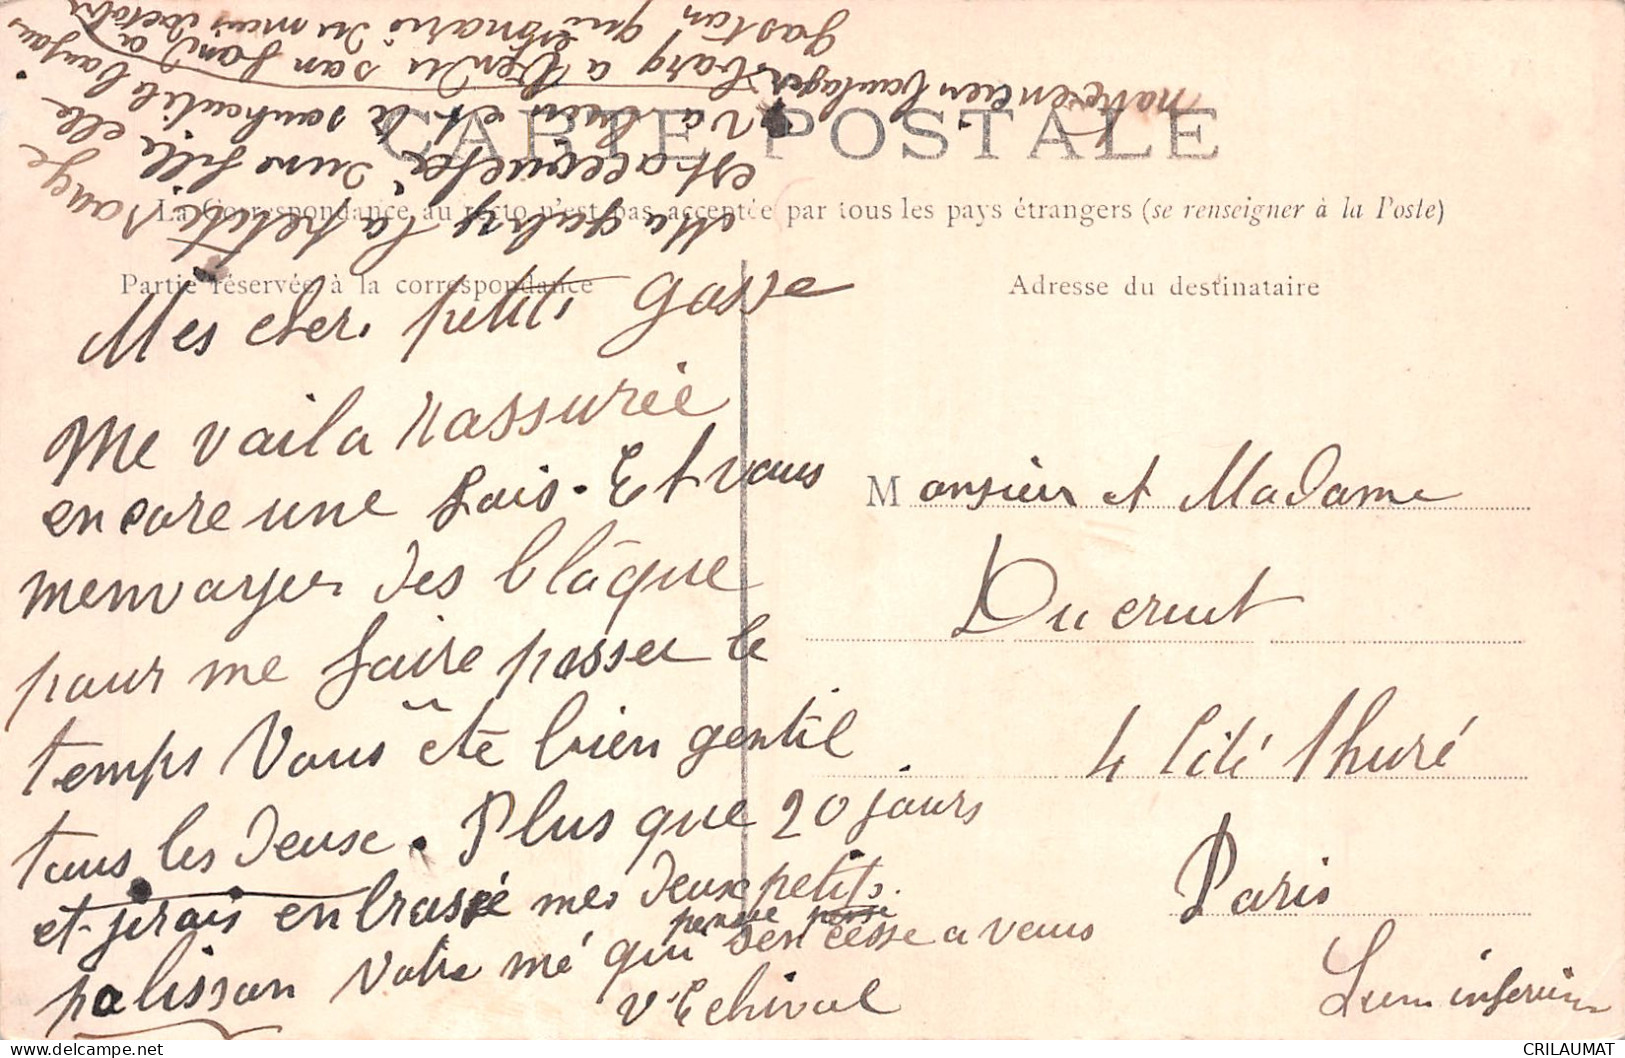 CARTE POSTALE
La Correspondance au recto n'est pas acceptée par tous les pays étrangers (se renseigner à la Poste)
Partie réservée à la correspondance
Adresse du destinataire
Mes cher petits gosse
Me vaila rassurée
encore une fois. Et vous
menvoyer des blâque
pour me faire passer le
temps Vous ête bien gentil
tous les deuse. Plus que 20 jours
et jirais enbrassé mes deux petits
polisson Votre mé qui pensse
sen cesse a vous
V Echival
Monsieur et Madame
Ducrut
4 Cité Thuré
Paris
notre encien boulager
a vendu son fond a
gaston qui du mois
La petite
est d'une fille elle
CRILAUMAT